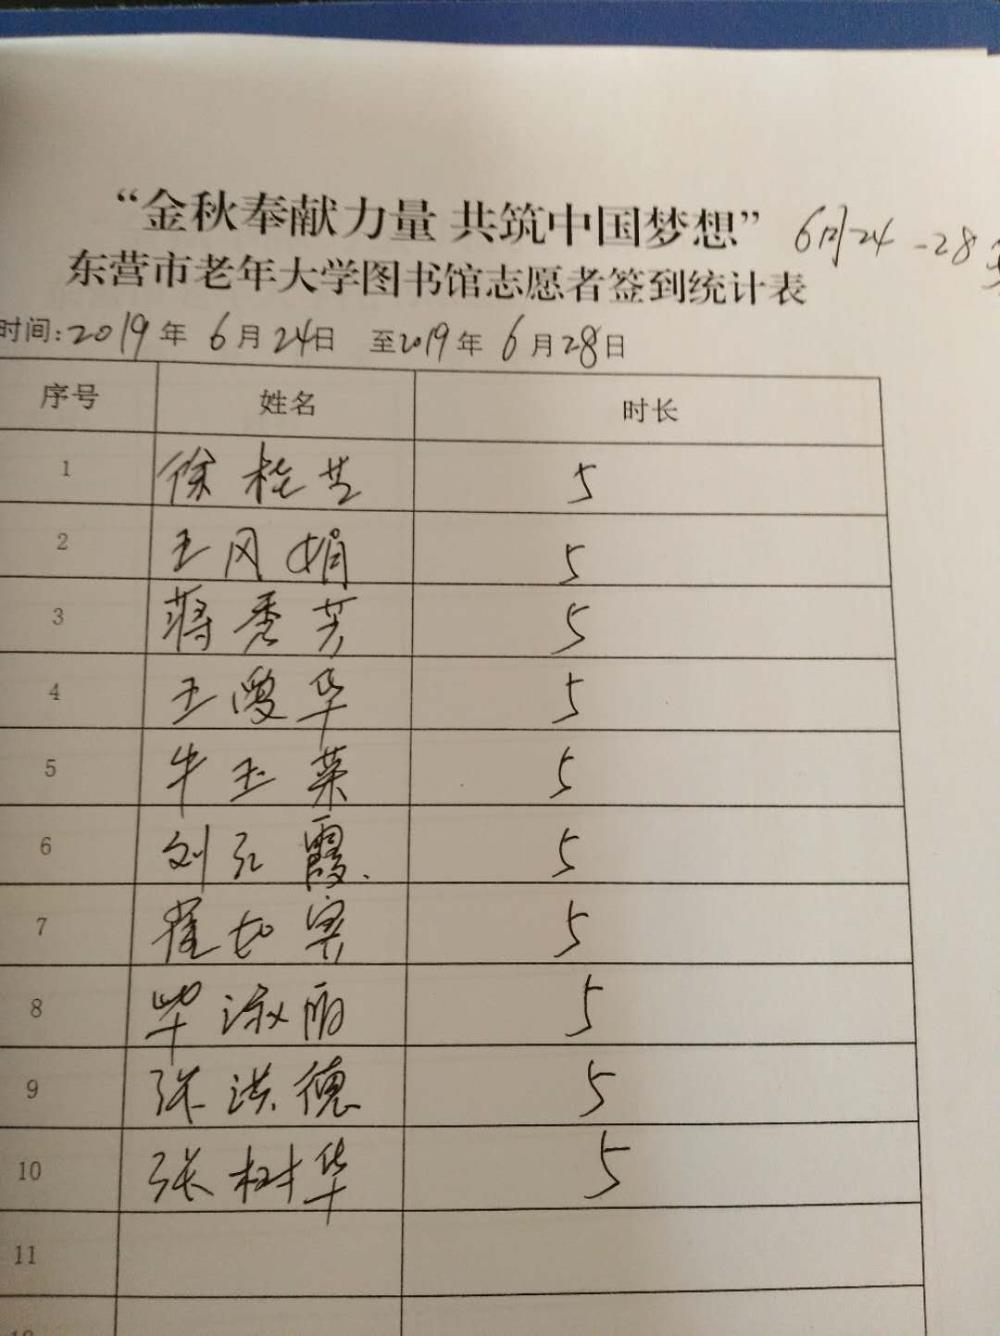 “金秋奉献力量 共筑中国梦想” 6月24-28
东营市老年大学图书馆志愿者签到统计表
时间:2019年6月24日 至2019年6月28日
序号 姓名 时长
1 徐桂芝 5
2 王风娟 5
3 蒋秀芳 5
4 王爱华 5
5 牛玉菜 5
6 刘红霞. 5
7 崔如 5
8 毕淑丽 5
9 张洪德 5
10 张树华 5
11